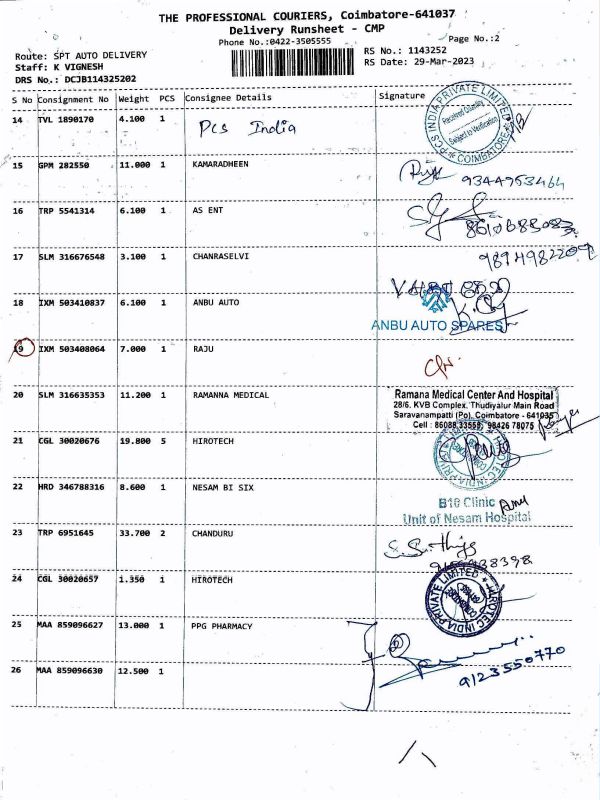 THE PROFESSIONAL COURIERS, Coimbatore-641037
Delivery Runsheet - CMP
Phone No.:0422-3505555
Page No.:2
Route: SPT AUTO DELIVERY
Staff: K VIGNESH
DRS No.: DCJB114325202
RS No.: 1143252
RS Date: 29-Mar-2023
S No Consignment No Weight PCS Consignee Details Signature
14 TVL 1890170 4.100 1 Pcs India
PCS INDIA PRIVATE LIMITED
COIMBATORE
Received Quantity
Subject to Verification
15 GPM 282550 11.000 1 KAMARADHEEN
9344953464
16 TRP 5541314 6.100 1 AS ENT
17 SLM 316676548 3.100 1 CHANRASELVI
9894982209
18 IXM 503410837 6.100 1 ANBU AUTO
ANBU AUTO SPARES
19 IXM 503408064 7.000 1 RAJU
20 SLM 316635353 11.200 1 RAMANNA MEDICAL
Ramana Medical Center And Hospital
28/6, KVB Complex, Thudiyalur Main Road
Saravanampatti (Po), Coimbatore - 641035
Cell : 86088 33558, 98426 78075
21 CGL 30020676 19.800 5 HIROTECH
HIROTEC INDIA PRIVATE
22 HRD 346788316 8.600 1 NESAM BI SIX
B10 Clinic
Unit of Nesam Hospital
23 TRP 6951645 33.700 2 CHANDURU
24 CGL 30020657 1.350 1 HIROTECH
HIROTEC INDIA PRIVATE LIMITED
25 MAA 859096627 13.000 1 PPG PHARMACY
26 MAA 859096630 12.500 1
9123550770